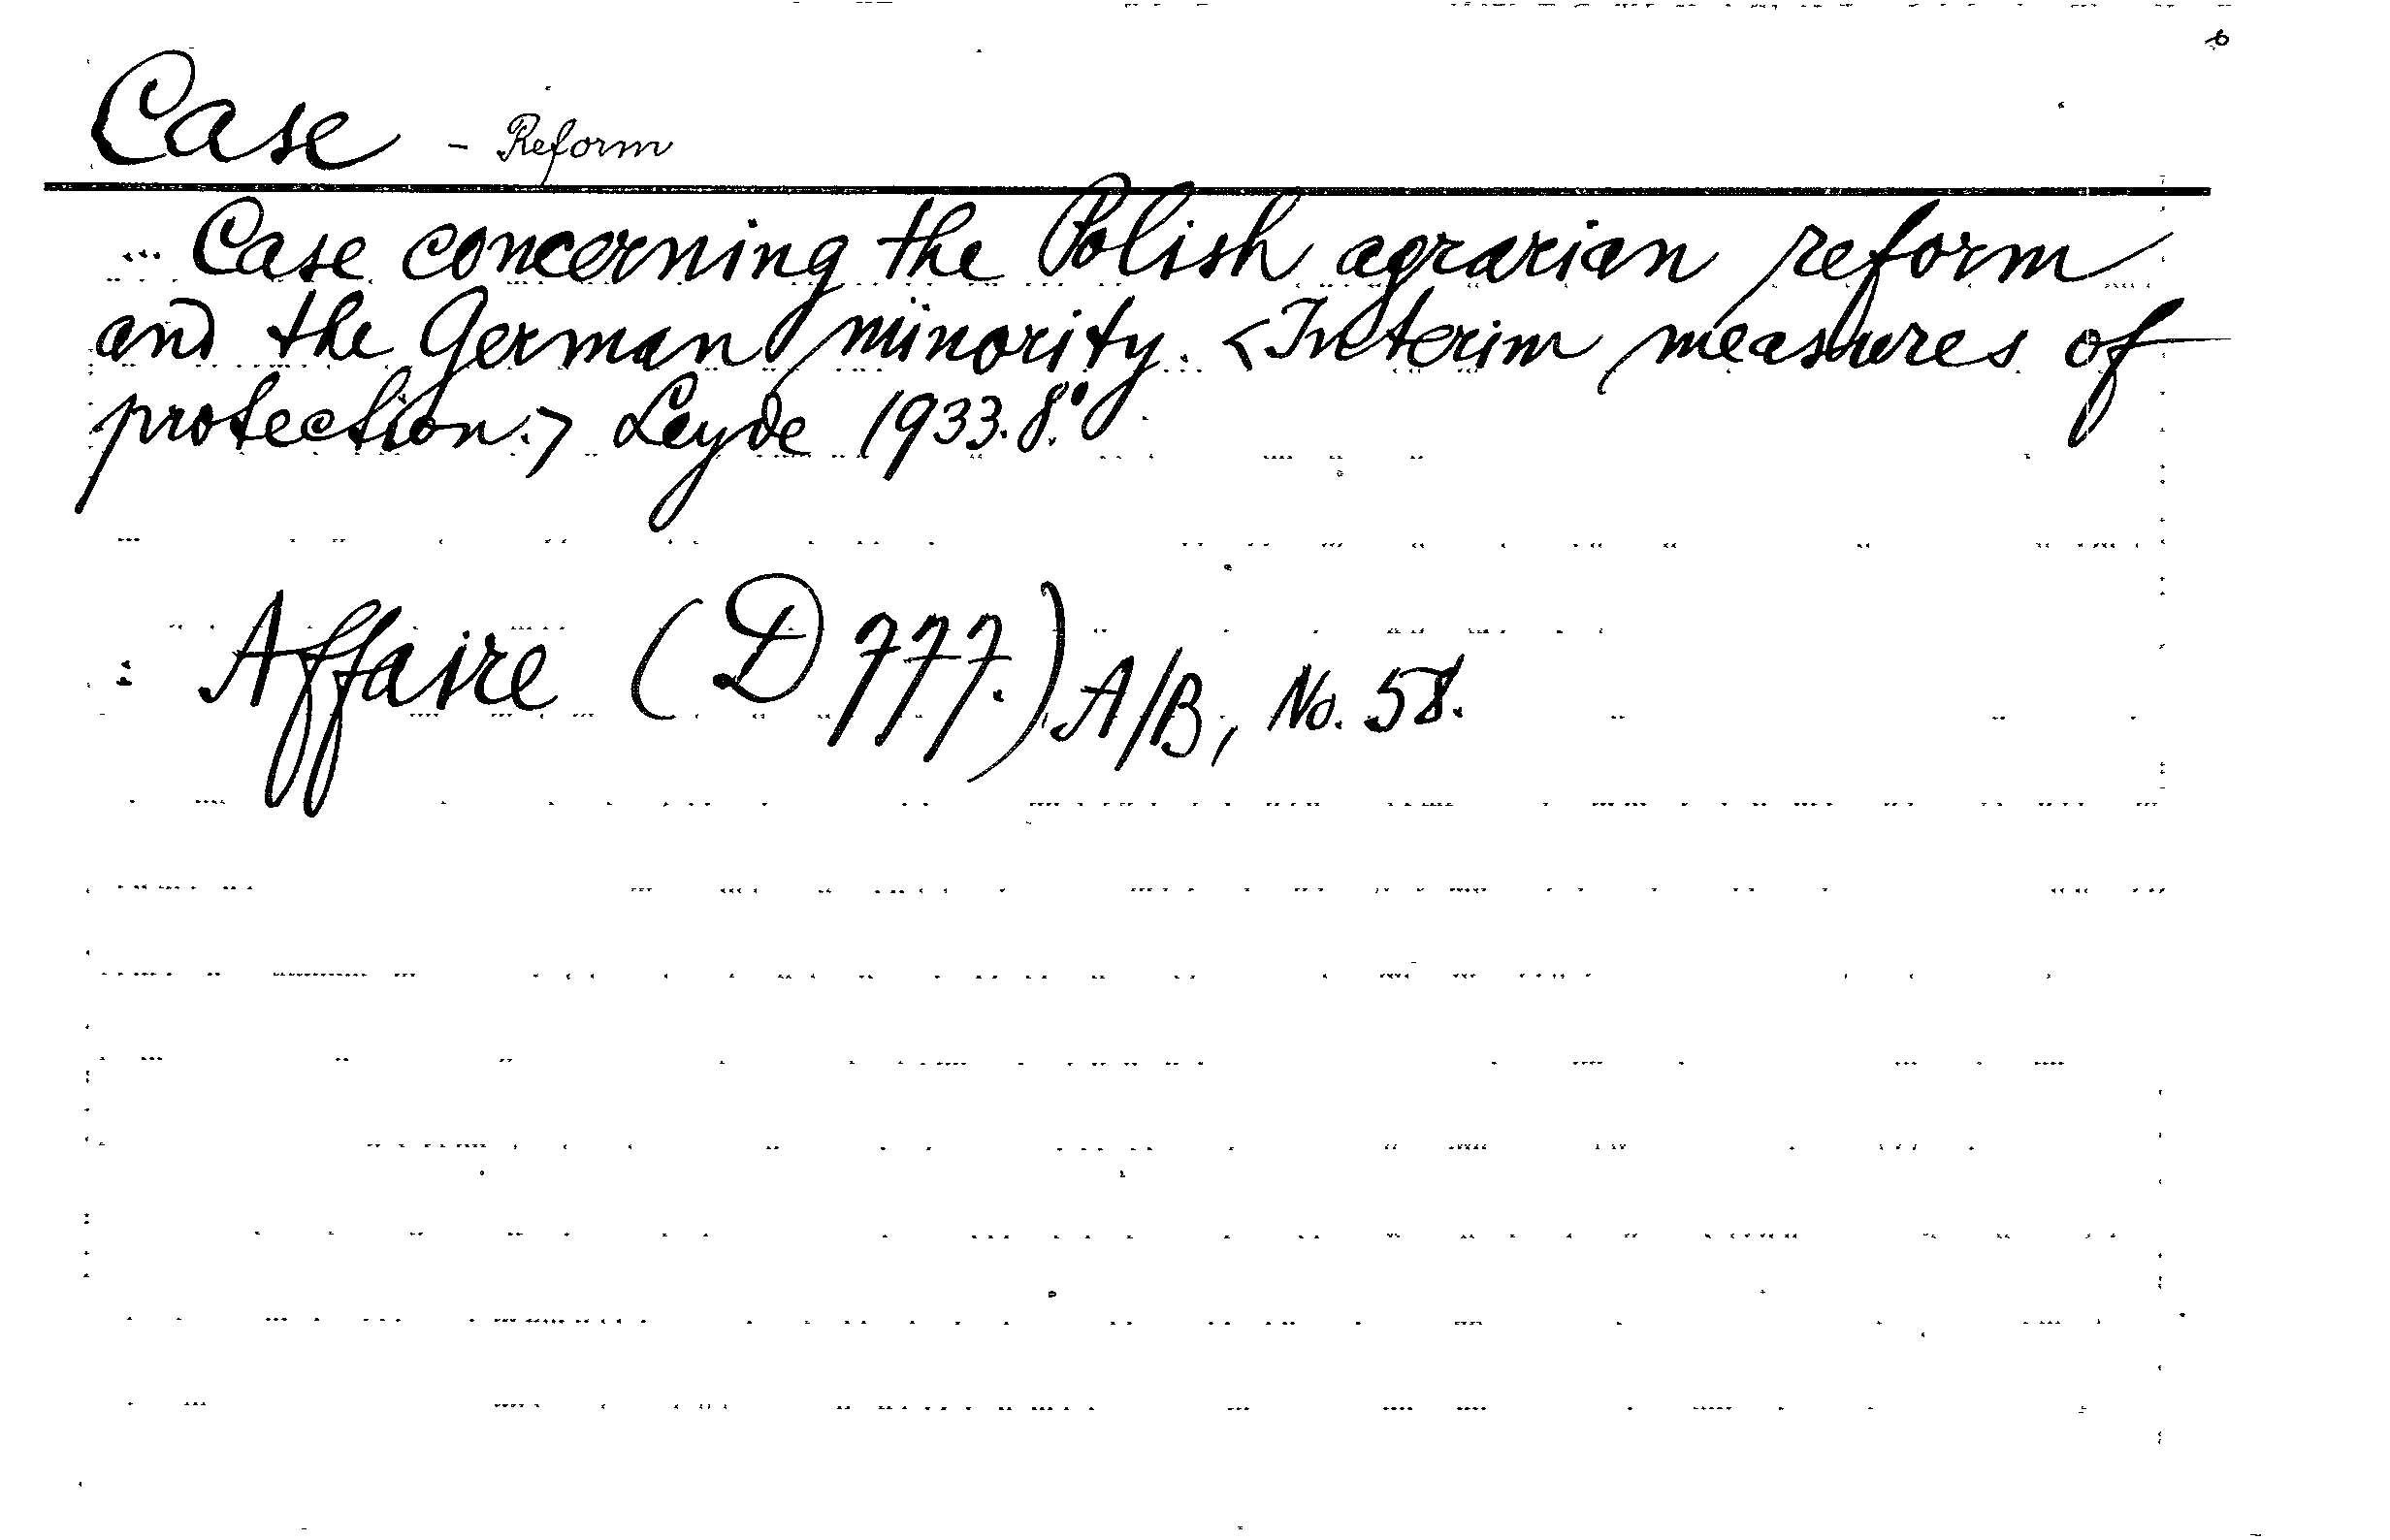 Case - Reform
Case concerning the Polish agrarian reform
and the German minority. <Interim measures of
protection.> Leyde 1933. 8°.
: Affaire (D 777.) A/B, No. 58.